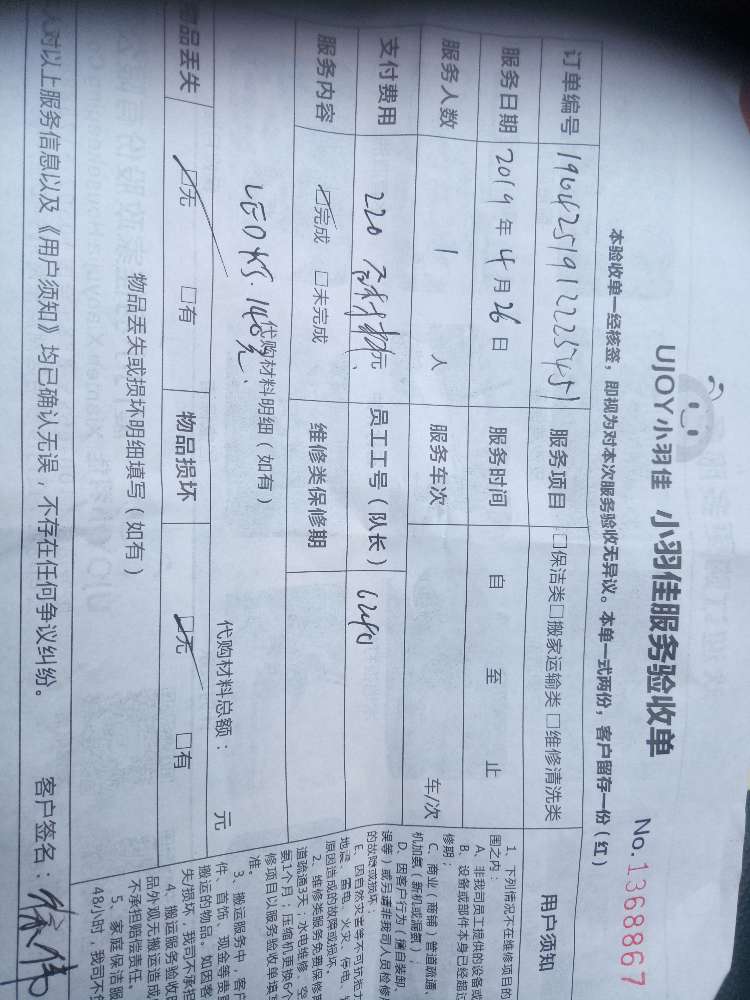 UJOY小羽佳 小羽佳服务验收单 No.1368867
本验收单一经核签，即视为对本次服务验收无异议。本单一式两份，客户留存一份（红）
订单编号 服务项目 □保洁类□搬家运输类□维修清洗类 用户须知
服务日期 2019年4月26日 服务时间 自 至 止
服务人数 1 人 服务车次 车/次
支付费用 220 元 员工工号（队长）
服务内容 ☑完成 □未完成 维修类保修期
代购材料明细（如有）
代购材料总额： 元
物品丢失 ☑无 □有 物品损坏 ☑无 □有
物品丢失或损坏明细填写（如有）
人对以上服务信息以及《用户须知》均已确认无误，不存在任何争议纠纷。 客户签名：
1、下列情况不在维修项目的
围之内：
A、非我司员工提供的设备或
B、设备或部件本身已经超过
修期；
C、商业（商铺）管道疏通、
机加氨（新机或漏氨）；
D、因客户行为（擅自装卸、
误等）或另请非我司人员检修
的故障或损坏；
E、因自然灾害等不可抗拒力
地震、雷电、火灾、停电、
原因造成的故障或损坏。
2、维修类服务免费保修
道疏通3天；水电维修、空
氨1个月；压缩机更换6个
修项目以服务验收单填写
准。
3、搬运服务中，客户
件、首饰、现金等贵重
搬运的物品。如因客
失/损坏，我司不承担
4、搬运服务验收
品外观无搬运造成
不承担赔偿责任。
5、家庭保洁服
48小时，我司不